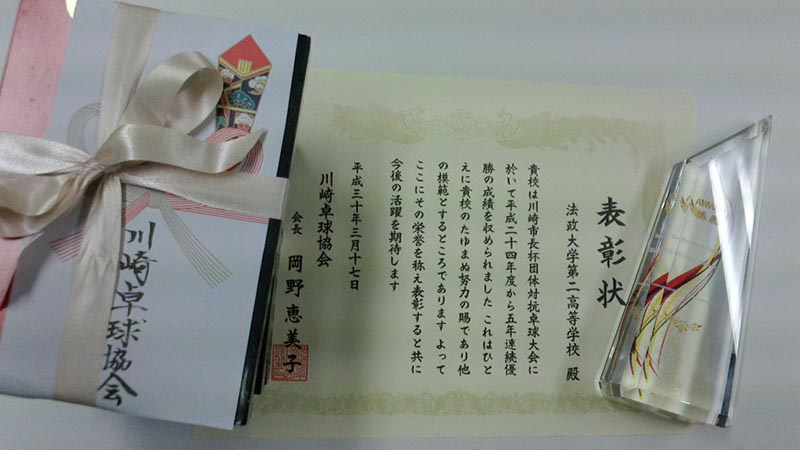 表彰状
法政大学第二高等学校 殿
貴校は川崎市長杯団体対抗卓球大会に
於いて平成二十四年度から五年連続優
勝の成績を収められました これはひと
えに貴校のたゆまぬ努力の賜であり他
の模範とするところであります よって
ここにその栄誉を称え表彰すると共に
今後の活躍を期待します
平成三十年三月十七日
川崎卓球協会
会長 岡野恵美子
川崎卓球協会